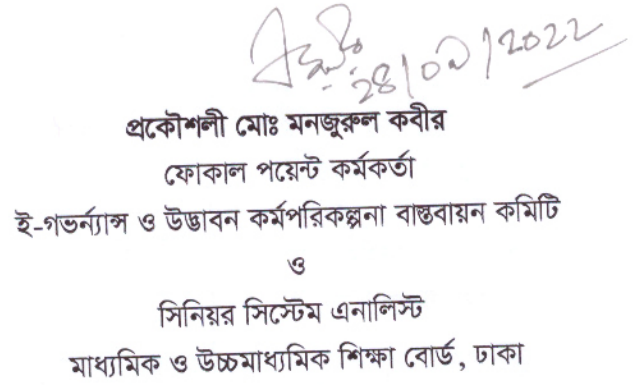 ২৪/০৯/2022
প্রকৌশলী মোঃ মনজুরুল কবীর
ফোকাল পয়েন্ট কর্মকর্তা
ই-গভর্ন্যান্স ও উদ্ভাবন কর্মপরিকল্পনা বাস্তবায়ন কমিটি
ও
সিনিয়র সিস্টেম এনালিস্ট
মাধ্যমিক ও উচ্চমাধ্যমিক শিক্ষা বোর্ড, ঢাকা